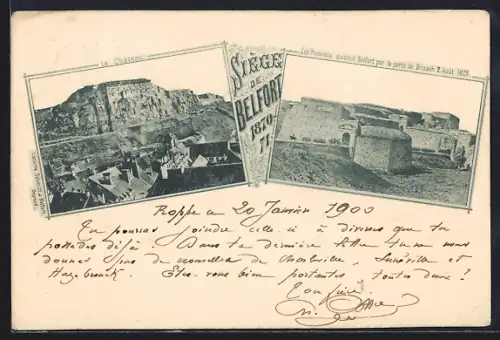 Le Château
Les Prussiens quittent Belfort par la porte de Brisach 2 Août 1873
SIÈGE
DE
BELFORT
1870
71
Roppe le 20 Janvier 1900
Tu pourras joindre celle-ci à diverses que tu
possèdes déjà. Dans ta dernière lettre tu ne nous
donnes pas de nouvelles de Charleville, Lunéville et
Hazebrouck. Êtes-vous bien portantes, toutes deux ?
Ton frère